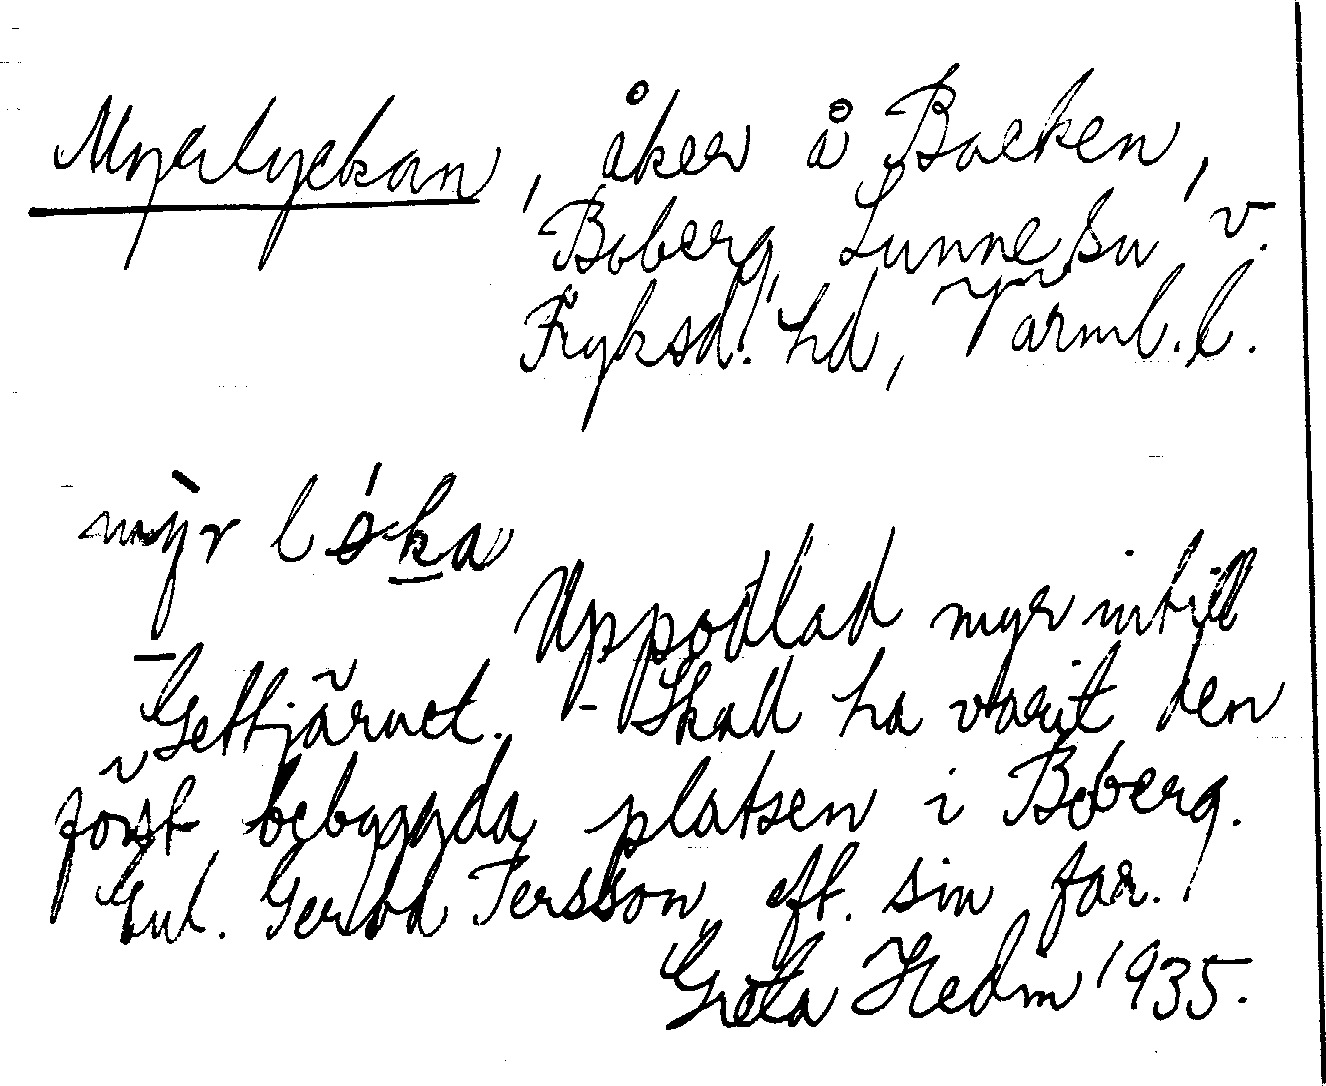 Myrlyckan, åker å Backen,
Boberg, Sunne sn, v.
Fryksd. hd, Värml. l.
mỳr lø̀ka
Uppodlad myr intill
Gettjärnet. - Skall ha varit den
först bebyggda platsen i Boberg.
Enl. Persson, eft. sin far.
Greta Hedin 1935.